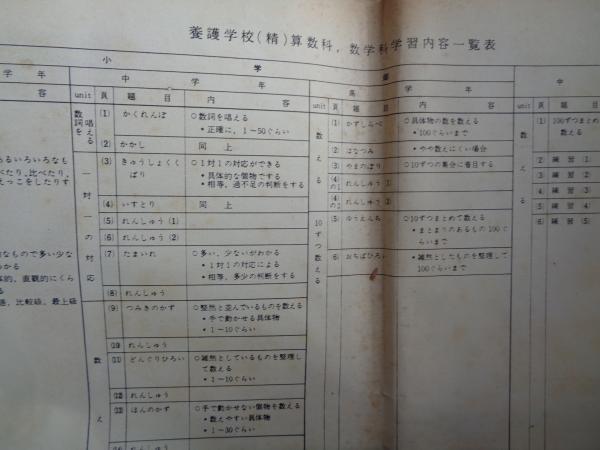 養護学校(精)算数科，数学科学習内容一覧表
小 学 部
学 年
容
あるいろいろなも
べたり，比べたり，
えっこをしたりす
なもので多い少な
わかる
体的，直観的にくら
る
語，比較級，最上級
中 学 年
unit 頁 題 目 内 容
数詞を唱える
(1) かくれんぼ ○数詞を唱える
・正確に，1～50ぐらい
(2) かかし 同 上
一対一の対応
(3) きゅうしょくくばり ○1対1の対応ができる
・具体的な個物でする
・相等，過不足の判断をする
(4) いすとり 同 上
(5) れんしゅう (1)
(6) れんしゅう (2)
(7) たまいれ ○多い，少ないがわかる
・1対1の対応による
・相等，多少の判断をする
(8) れんしゅう
数え
(9) つみきのかず ○整然と並んでいるものを数える
・手で動かせる具体物
・1～10ぐらい
(10) れんしゅう
(11) どんぐりひろい ○雑然としているものを整理して数える
・1～10ぐらい
(12) れんしゅう
(13) ほんのかず ○手で動かせない個物を数える
・数えやすい具体物
・1～30ぐらい
れんしゅう
高 学 年
unit 頁 題 目 内 容
数える
(1) かずしらべ ○具体物の数を数える
・100ぐらいまで
(2) はなつみ ・やや数えにくい場合
(3) やまのぼり ○10ずつの集合に着目する
(4)の1 れんしゅう ①
(4)の2 れんしゅう ②
10ずつ数える
(5) ゆうえんち ○10ずつまとめて数える
・まとまりのあるもの100ぐらいまで
(6) おちばひろい ・雑然としたものを整理して100ぐらいまで
中
unit 頁 題 目
数える
(1) 100ずつまとめ
数える
(2) 練習 (1)
(3) 練習 (2)
(4) 練習 (3)
(5) 練習 (4)
(6) 練習 (5)